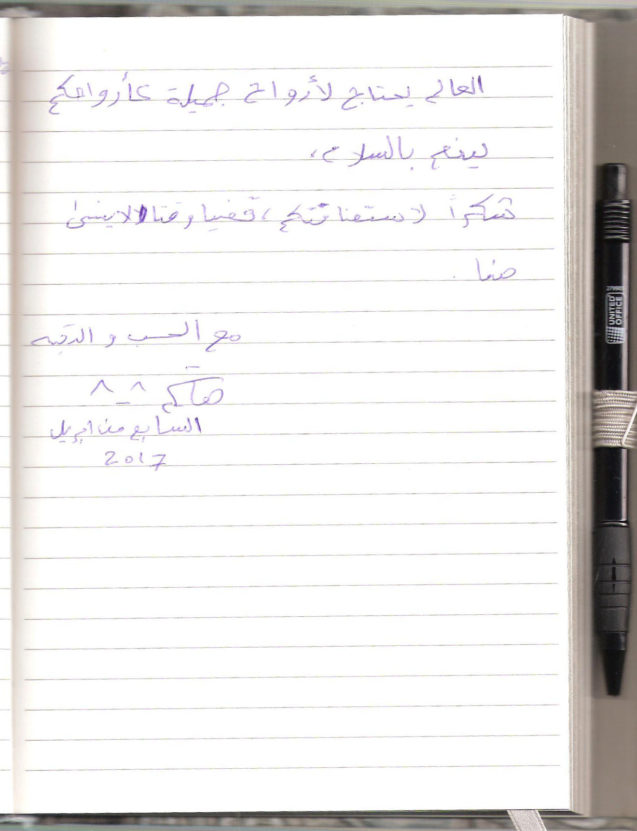 العالم يحتاج لأرواح جميلة كأرواحكم
لينعم بالسلام،
شكراً لاستضافتكم، قضينا وقتا لا ينسى
هنا.
مع الحب و
السابع من ابريل
2017
UNITED OFFICE